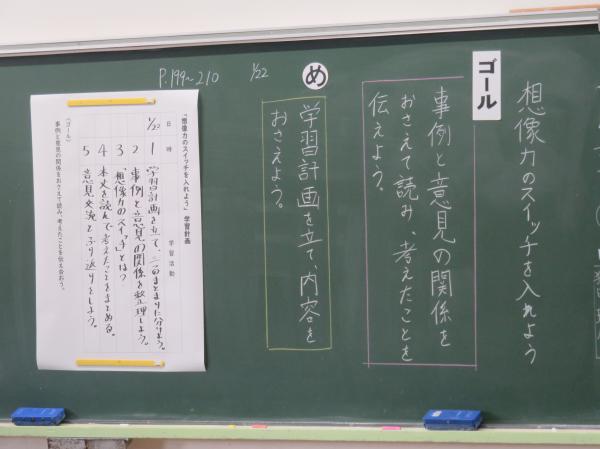 想像力のスイッチを入れよう
ゴール
事例と意見の関係を
おさえて読み、考えたことを
伝えよう。
め
学習計画を立て、内容を
おさえよう。
1/22
P.199~210
「想像力のスイッチを入れよう」学習計画
日 時 学習活動
1/22 1 学習計画を立て、三つのまとまりに分けよう。
2 事例と意見の関係を整理しよう。
3 「想像力のスイッチ」とは?
4 本文を読んで考えたことをまとめる。
5 意見交流とふり返りをしよう。
《ゴール》
事例と意見の関係をおさえて読み、考えたことを伝え合おう。